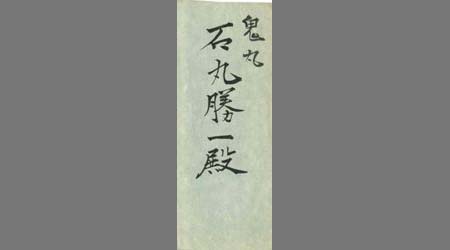 鬼丸
石丸勝一殿